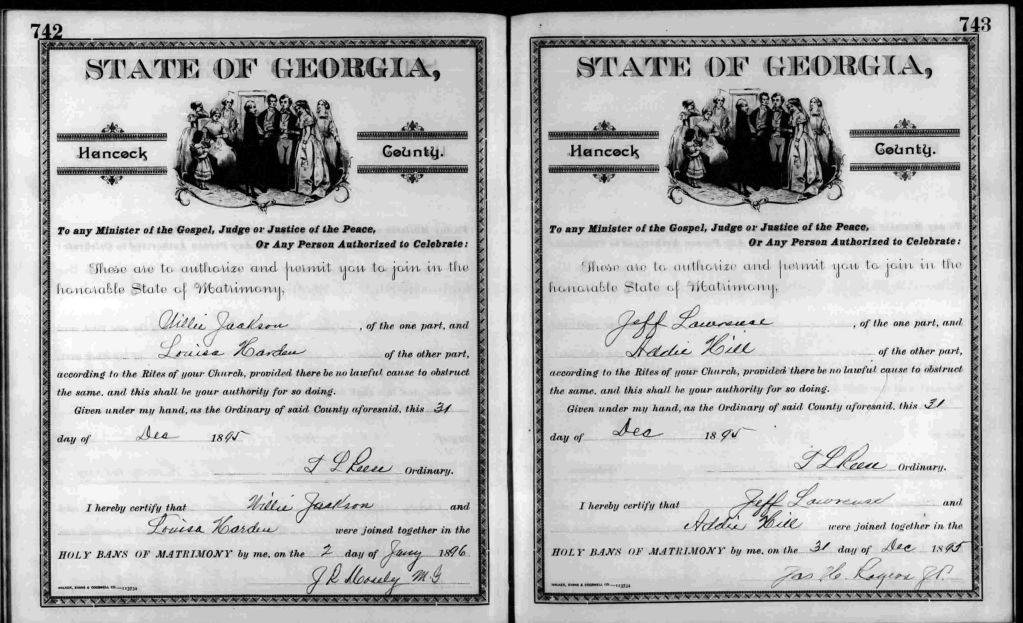 742
STATE OF GEORGIA,
Hancock County.
To any Minister of the Gospel, Judge or Justice of the Peace,
Or Any Person Authorized to Celebrate:
These are to authorize and permit you to join in the
honorable State of Matrimony,
Willie Jackson , of the one part, and
Louisa Harden of the other part,
according to the Rites of your Church, provided there be no lawful cause to obstruct
the same, and this shall be your authority for so doing.
Given under my hand, as the Ordinary of said County aforesaid, this 31
day of Dec 1895
T L Reese Ordinary.
I hereby certify that Willie Jackson and
Louisa Harden were joined together in the
HOLY BANS OF MATRIMONY by me, on the 2 day of Jany 1896
J R Mosely M.G
743
STATE OF GEORGIA,
Hancock County.
To any Minister of the Gospel, Judge or Justice of the Peace,
Or Any Person Authorized to Celebrate:
These are to authorize and permit you to join in the
honorable State of Matrimony,
Jeff Lawrence , of the one part, and
Addie Hill of the other part,
according to the Rites of your Church, provided there be no lawful cause to obstruct
the same, and this shall be your authority for so doing.
Given under my hand, as the Ordinary of said County aforesaid, this 31
day of Dec 1895
T L Reese Ordinary.
I hereby certify that Jeff Lawrence and
Addie Hill were joined together in the
HOLY BANS OF MATRIMONY by me, on the 31 day of Dec 1895
Jas H. Rogers J.P.